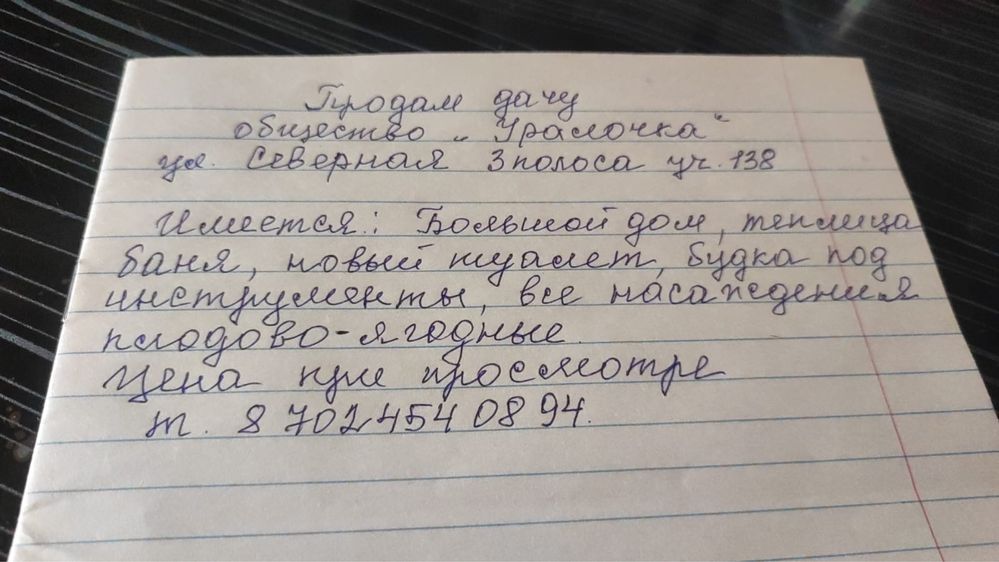 Продам дачу
общество „Уралочка"
ул. Северная 3 полоса уч. 138
Имеется: Большой дом, теплица
баня, новый туалет, будка под
инструменты, все насаждения
плодово-ягодные.
Цена при просмотре
т. 8 702 454 08 94.